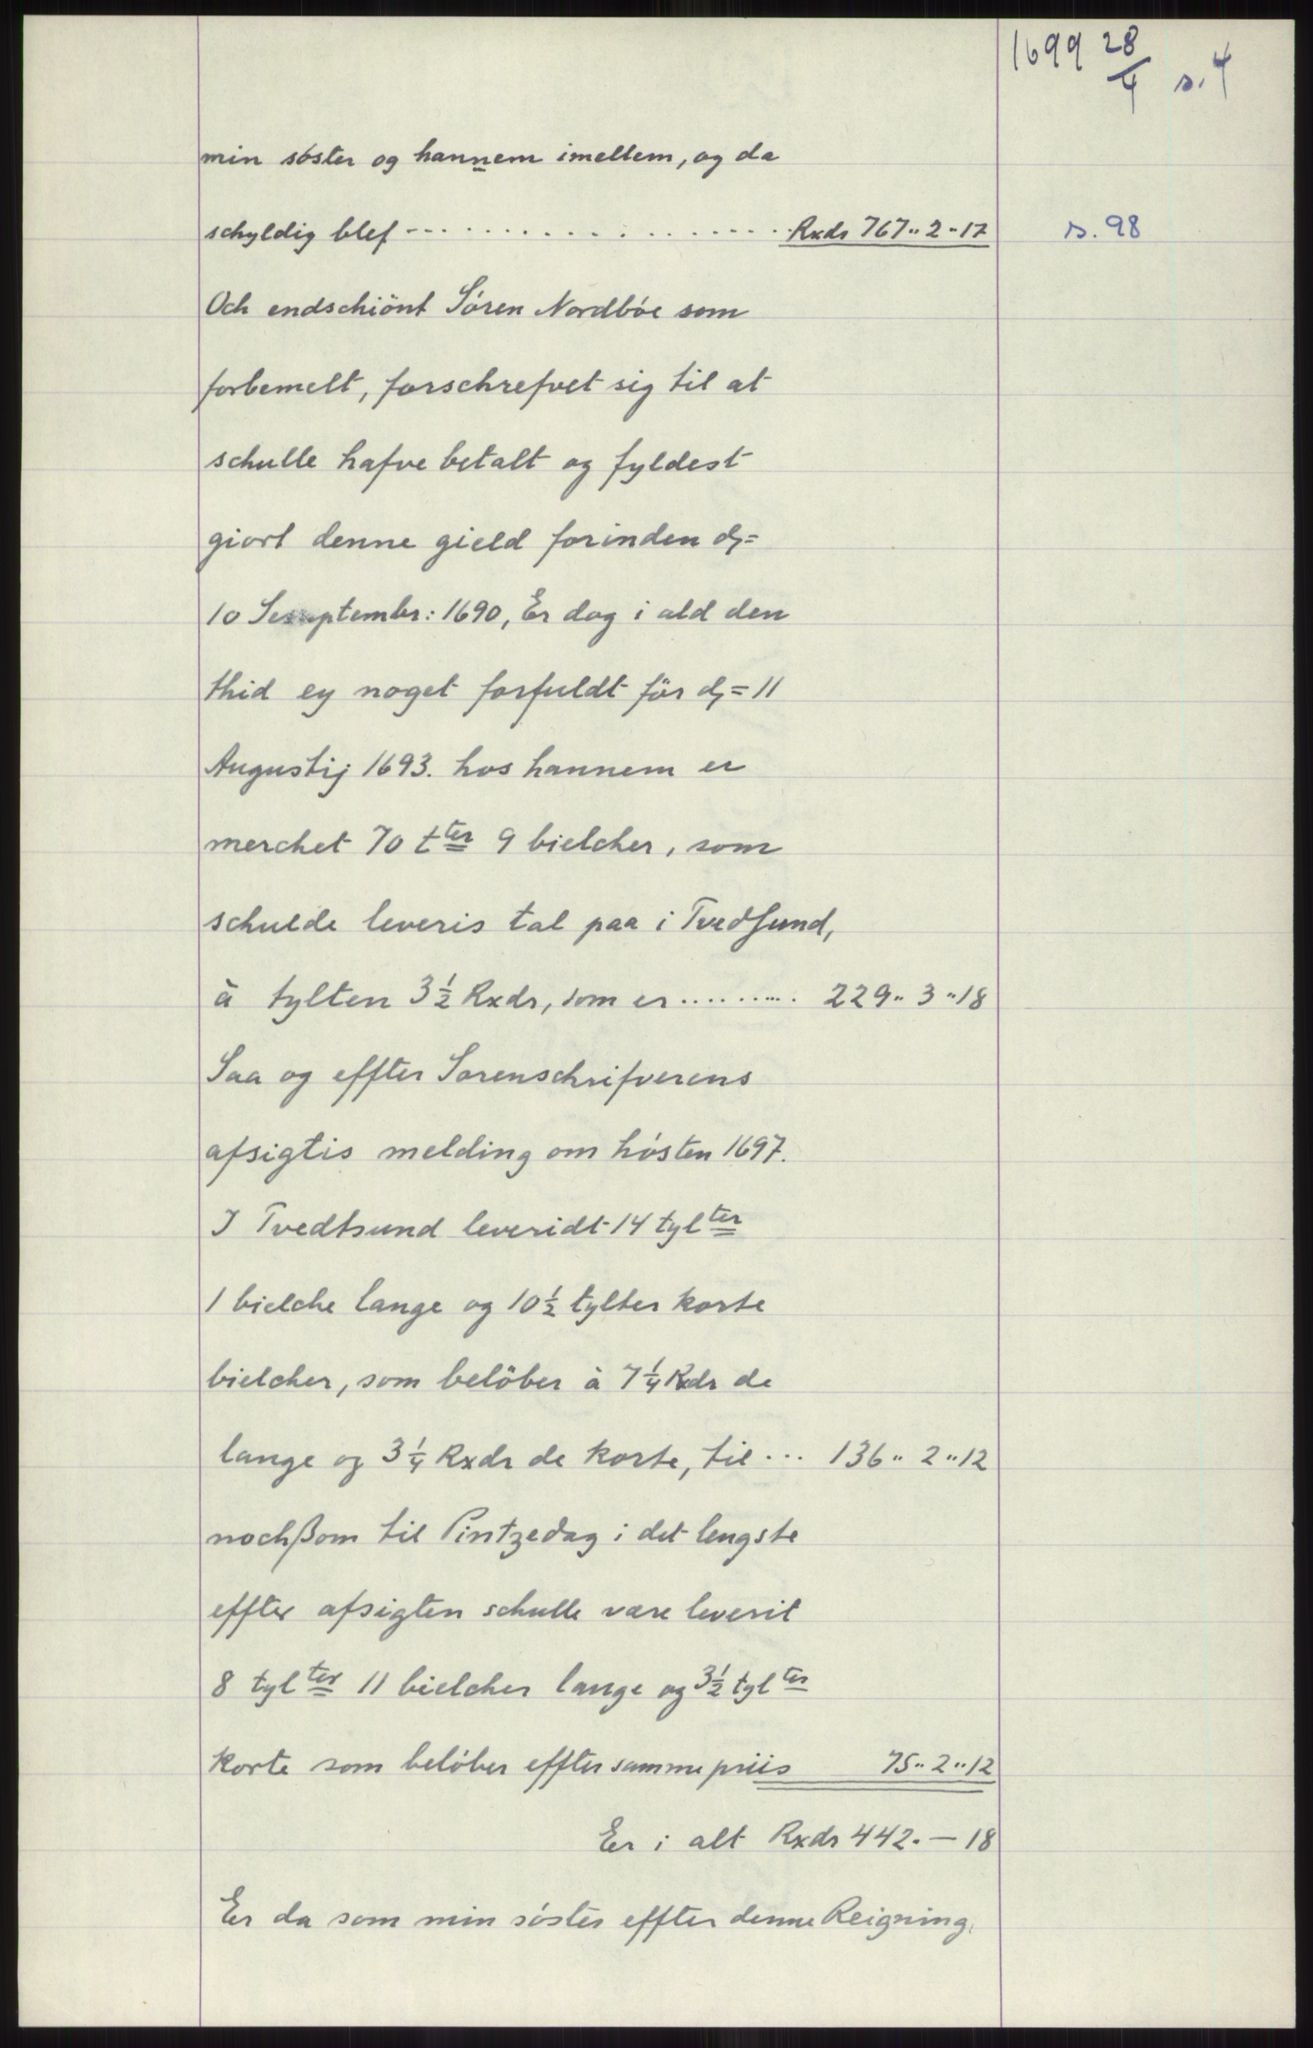 1699 28/4 s. 4
min söster og hannem imellem, og da
schyldig blef - - . . . . . . . . . . . . . . . . Rxdr 767" 2 " 17 s. 98
Och endschiönt Sören Nordböe som
forbemelt, forschrefvet sig til at
schulle hafve betalt og fyldest
giort denne gield forinden d=
10 Septembr: 1690, Er dog i ald den
thid ey noget forfuldt för d= 11
Augustij 1693. hos hannem er
merchet 70 tter 9 bielcher, som
schulde leveris tal paa i Tvedsund,
à tylten 3 1/2 Rxdr, som er . . . . . . . . . 229" 3 " 18
Saa og effter Sorenschrifverens
afsigtis melding om hösten 1697.
I Tvedtsund leveridt 14 tylter
1 bielche lange og 10 1/2 tylter korte
bielcher, som belöber à 7 1/4 Rxdr de
lange og 3 1/4 Rxdr de korte, til . . . 136" 2 " 12
nochßom til Pintzedag i det lengste
effter afsigten schulle være leverit
8 tylter 11 bielcher lange og 3 1/2 tylter
korte som belöber effter samme priis 75" 2 " 12
Er i alt Rxdr 442. — 18
Er da som min söster effter denne Reigning,